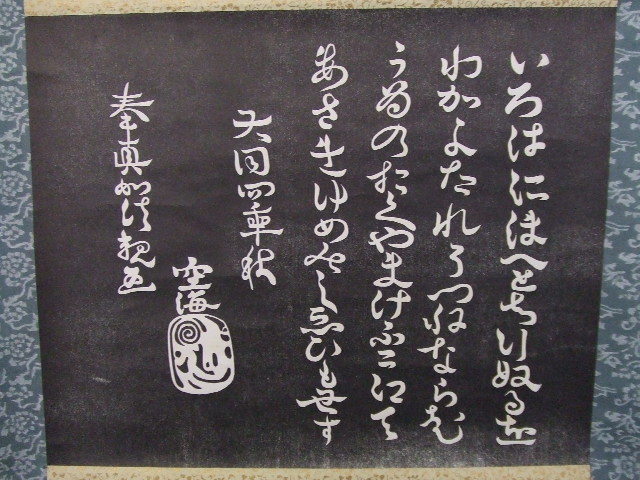 いろはにほへとちりぬるを
わかよたれそつねならむ
うゐのおくやまけふこえて
あさきゆめみしゑひもせす
天同四年秋
奉真如法親王
空海